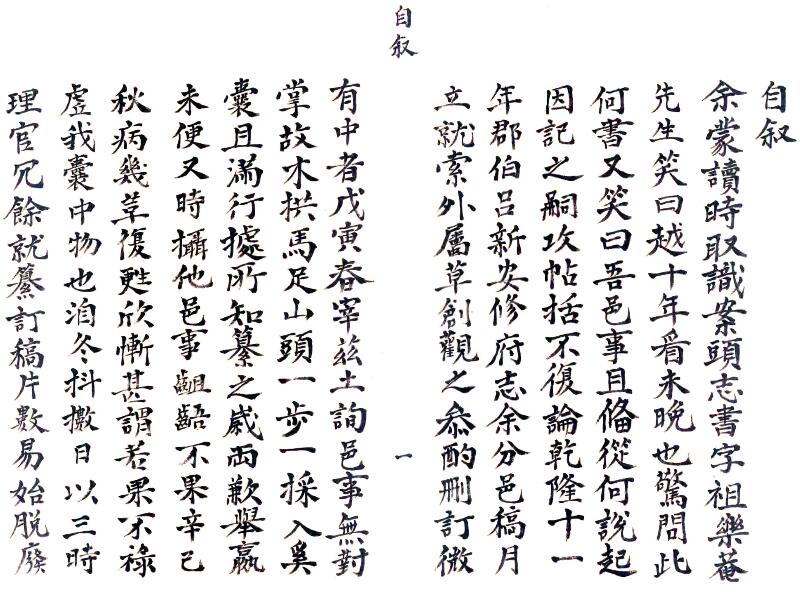 自叙
余蒙讀時取識案頭志書字祖樂菴
先生笑曰越十年看未晚也驚問此
何書又笑曰吾邑事且偹從何說起
因記之嗣攻帖括不復論乾隆十一
年郡伯呂新安修府志余分邑稿月
立就索外屬草創觀之叅酌刪訂微
自叙
一
有中者戊寅春宰兹土詢邑事無對
掌故木拱馬足山頭一步一採入奚
囊且滿行據所知纂之歲両歉舉羸
未便又時攝他邑事齟齬不果辛巳
秋病幾革復甦欣慚甚謂若果不祿
虗我囊中物也洎冬抖擻日以三時
理官冗餘就纂訂稿片數易始脱廢